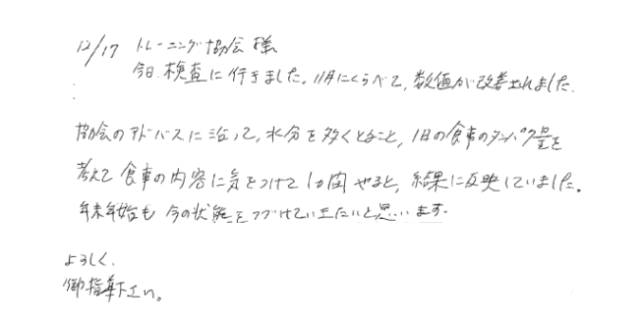 12/17 トレーニング協会 様
今日、検査に行きました。11月にくらべて、数値が改善されました。
協会のアドバスに沿って、水分を多くとること、1日の食事のタンパク量を
考えて食事の内容に気をつけて1か間やると、結果に反映していました。
年末年始も今の状態をつづけていきたいと思います。
よろしく、
御指導下さい。